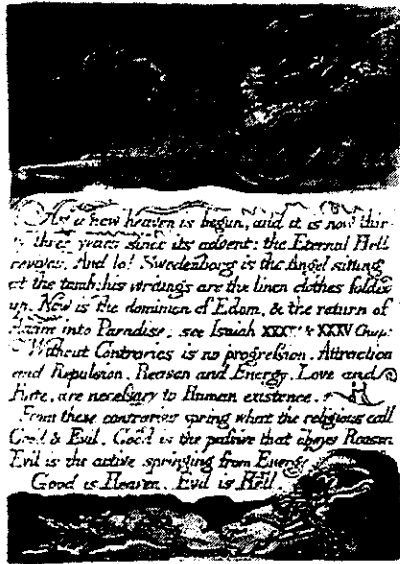 As a new heaven is begun, and it is now thir-
ty three years since its advent: the Eternal Hell
revives. And lo! Swedenborg is the Angel sitting
at the tomb: his writings are the linen clothes folded
up. Now is the dominion of Edom, & the return of
Adam into Paradise; see Isaiah XXXIV & XXXV Chap:
Without Contraries is no progression. Attraction
and Repulsion, Reason and Energy, Love and
Hate, are necessary to Human existence.
From these contraries spring what the religious call
Good & Evil. Good is the passive that obeys Reason
Evil is the active springing from Energy
Good is Heaven. Evil is Hell.